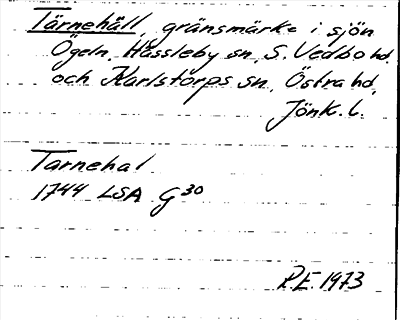 Tärnehäll, gränsmärke i sjön
Ögeln, Hässleby sn, S. Vedbo hd,
och Karlstorps sn, Östra hd,
Jönk. l.
Tarnehal
1744 LSA G 30
P.E. 1973